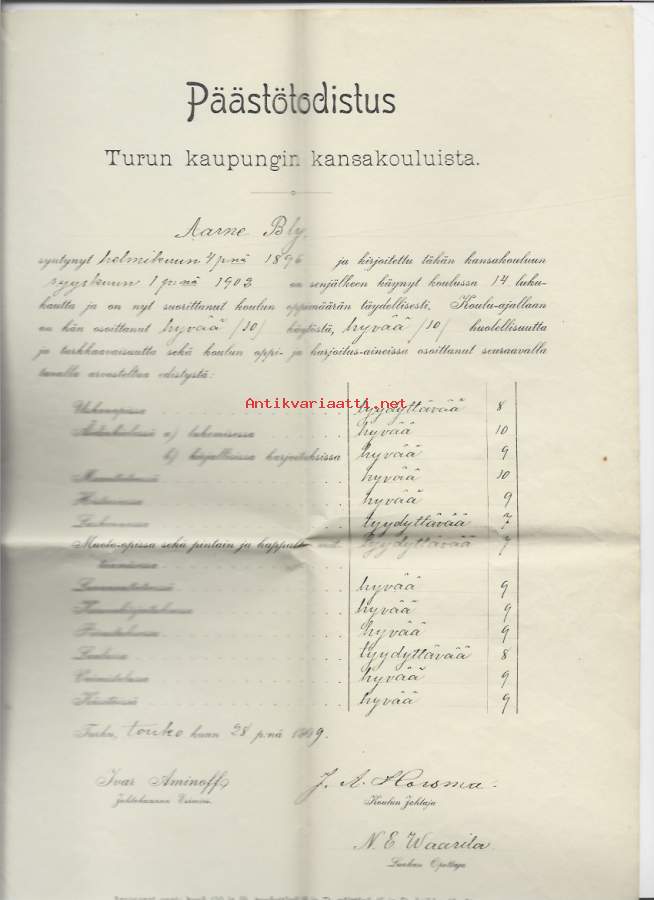 Päästötodistus
Turun kaupungin kansakouluista.
Aarne Bly,
syntynyt helmikuun 4 p:nä 1896 ja kirjoitettu tähän kansakouluun
syyskuun 1 p:nä 1903 on senjälkeen käynyt koulussa 14 luku-
kautta ja on nyt suorittanut koulun oppimäärän täydellisesti. Koulu-ajallaan
on hän osoittanut hyvää /10/ käytöstä, hyvää /10/ huolellisuutta
ja tarkkaavaisuutta sekä koulun oppi- ja harjoitus-aineissa osoittanut seuraavalla
tavalla arvosteltua edistystä:
Antikvariaatti.net
Uskonopissa tyydyttävää 8
Äidinkielessä a) lukemisessa hyvää 10
b) kirjallisissa harjoituksissa hyvää 9
Maantieteessä hyvää 10
Historiassa hyvää 9
Laskennossa tyydyttävää 7
Muoto-opissa sekä pintain ja kappalt. mit- tyydyttävää 7
taamisessa
Luonnontieteessä hyvää 9
Kaunokirjoituksessa hyvää 9
Piirustuksessa hyvää 9
Laulussa tyydyttävää 8
Voimistelussa hyvää 9
Käsitöissä hyvää 9
Turku, touko kuun 28 p:nä 19.
Ivar Aminoff J. A. Horsma.
Johtokunnan Esimies Koulun Johtaja
N. E. Waarila.
Luokan Opettaja